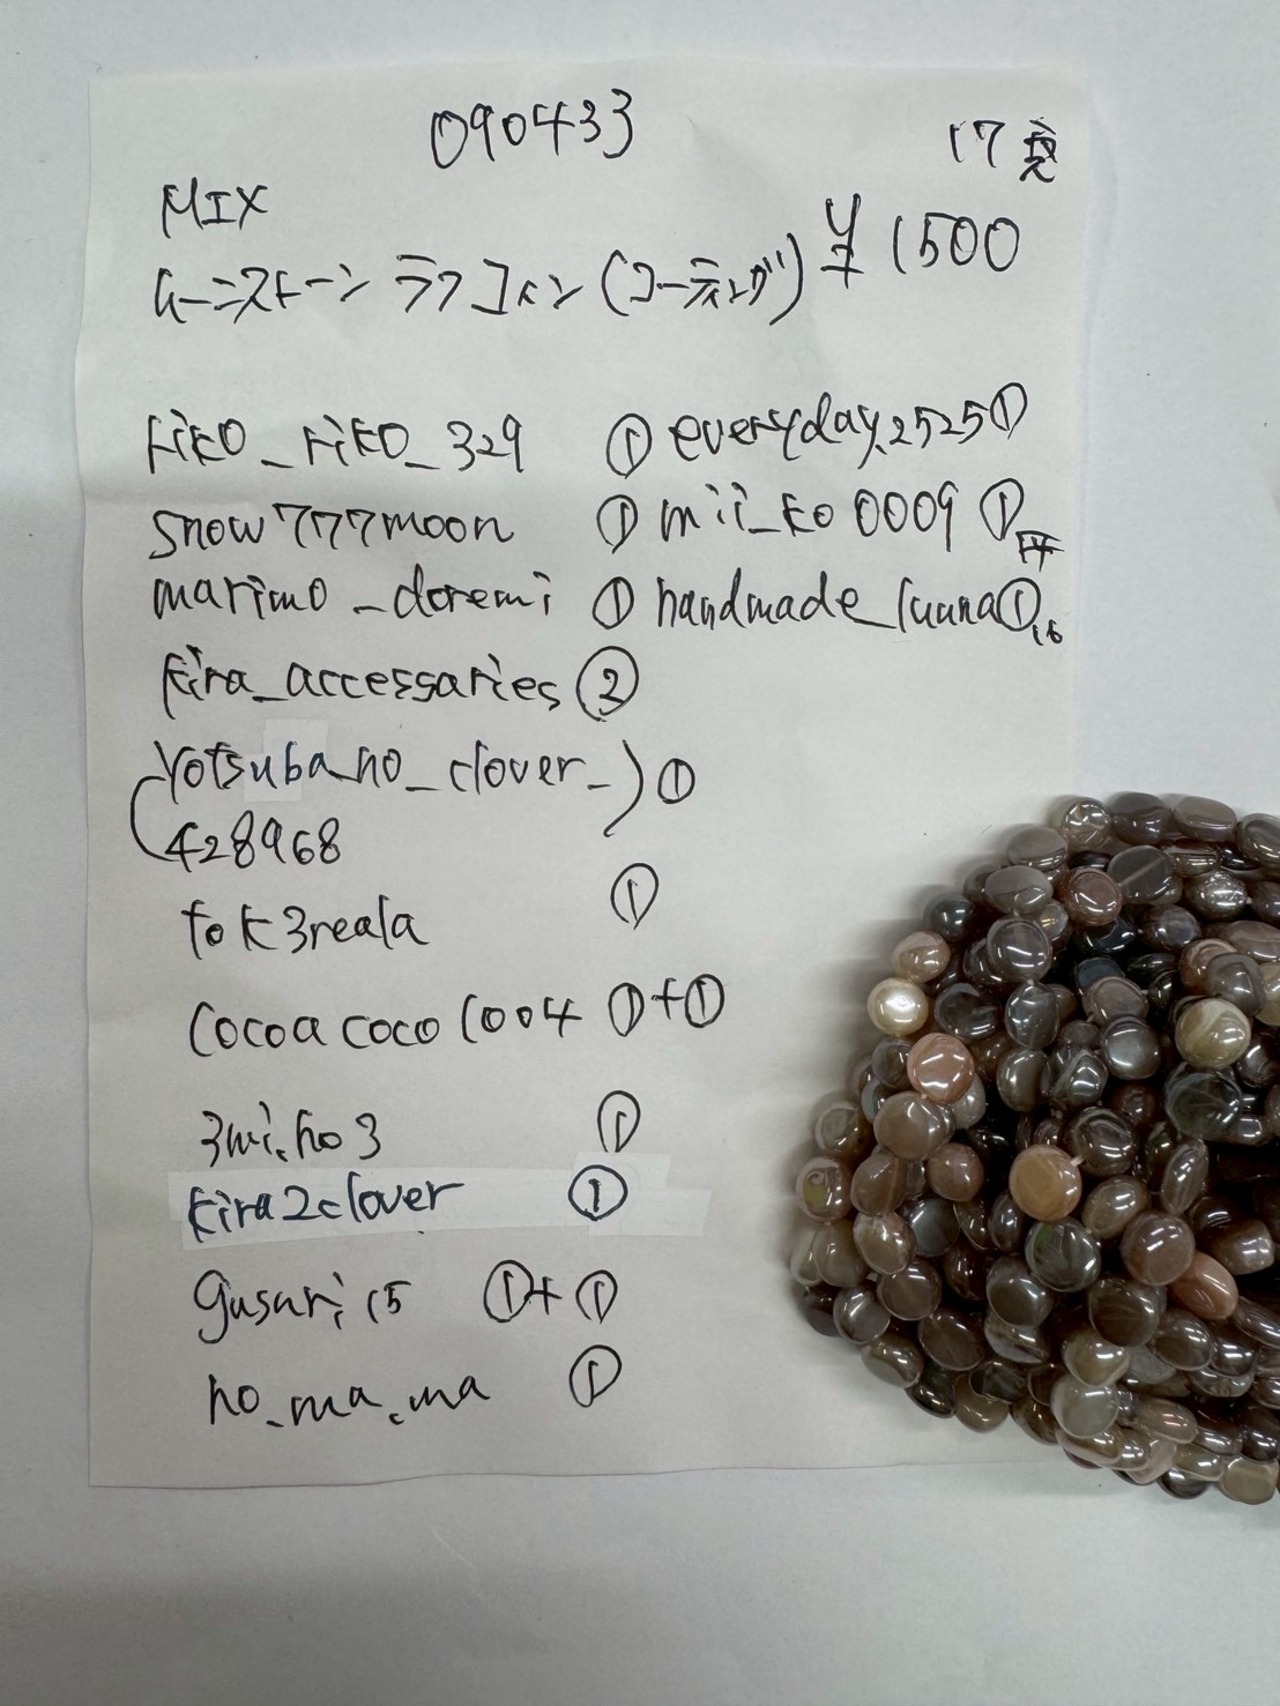 090433
17竞
MIX
ムーンストーン ラフコイン(コーティング) ¥1500
riko_riko_329 ①
everyday.2525①
snow777moon ①
mii_ko0009 ①
marimo_doremi ①
handmade_luuna①16
kira_accessaries ②
(yotsubano_clover_
428968) ①
tok3reala ①
cocoacoco1004 ①+①
3mi.ho3 ①
kira2clover ①
gusari15 ①+①
no_ma.ma ①